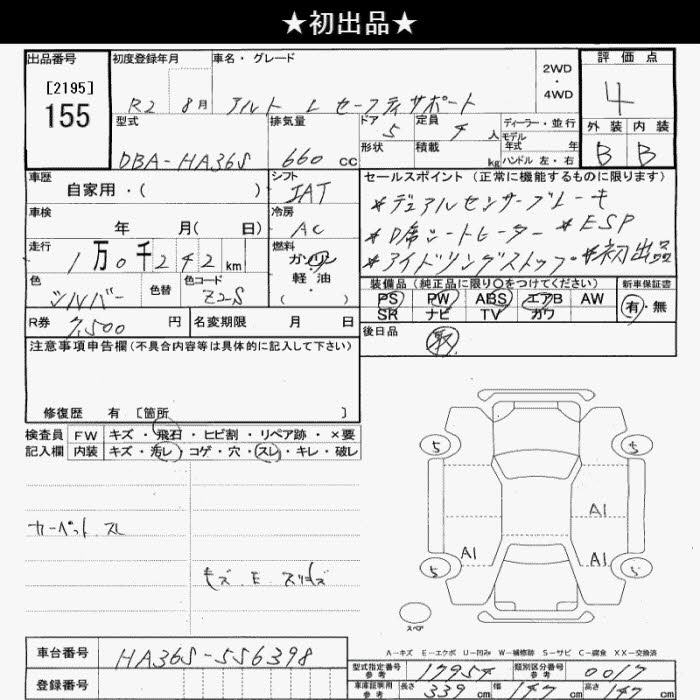 ★初出品★
出品番号
[2195]
155
初度登録年月
R2 8月
車名・グレード
アルト L セーフティサポート
2WD
・
4WD
評価点
4
外装 内装
B B
型式
DBA-HA36S
排気量
660 cc
ドア
5
定員
4 人
形状
積載
kg
ディーラー・並行
モデル
年式 年
ハンドル 左・右
車歴
自家用・( )
シフト
IAT
車検
年 月( 日)
冷房
AC
走行
1万0千242km
燃料
ガソリン
軽油
( ・ )
色
シルバー
色替
色コード
Z2S
R券
7,500 円
名変期限 月 日
セールスポイント(正常に機能するものに限ります)
*デュアルセンサーブレーキ
*D席シートヒーター *ESP
*アイドリングストップ *初出品
装備品(純正品に限り〇をつけてください)
PS PW ABS エアB AW
SR ナビ TV カワ
新車保証書
有・無
後日品
取
注意事項申告欄(不具合内容等は具体的に記入して下さい)
修復歴 有 [箇所 ]
検査員
記入欄
FW キズ・飛石・ヒビ割・リペア跡・×要
内装 キズ・汚レ・コゲ・穴・スレ・キレ・破レ
カーペット スレ
キズ E スリキズ
5 5
A1
A1 A1
5 5
スペア
A-キズ E-エクボ U-凹み W-補修跡 S-サビ C-腐食 XX-交換済
車台番号
HA36S-556398
登録番号
型式指定番号
参考
17954
類別区分番号
参考
0017
車庫証明用
参考
長さ 339 cm 幅 147 cm 高さ 147 cm